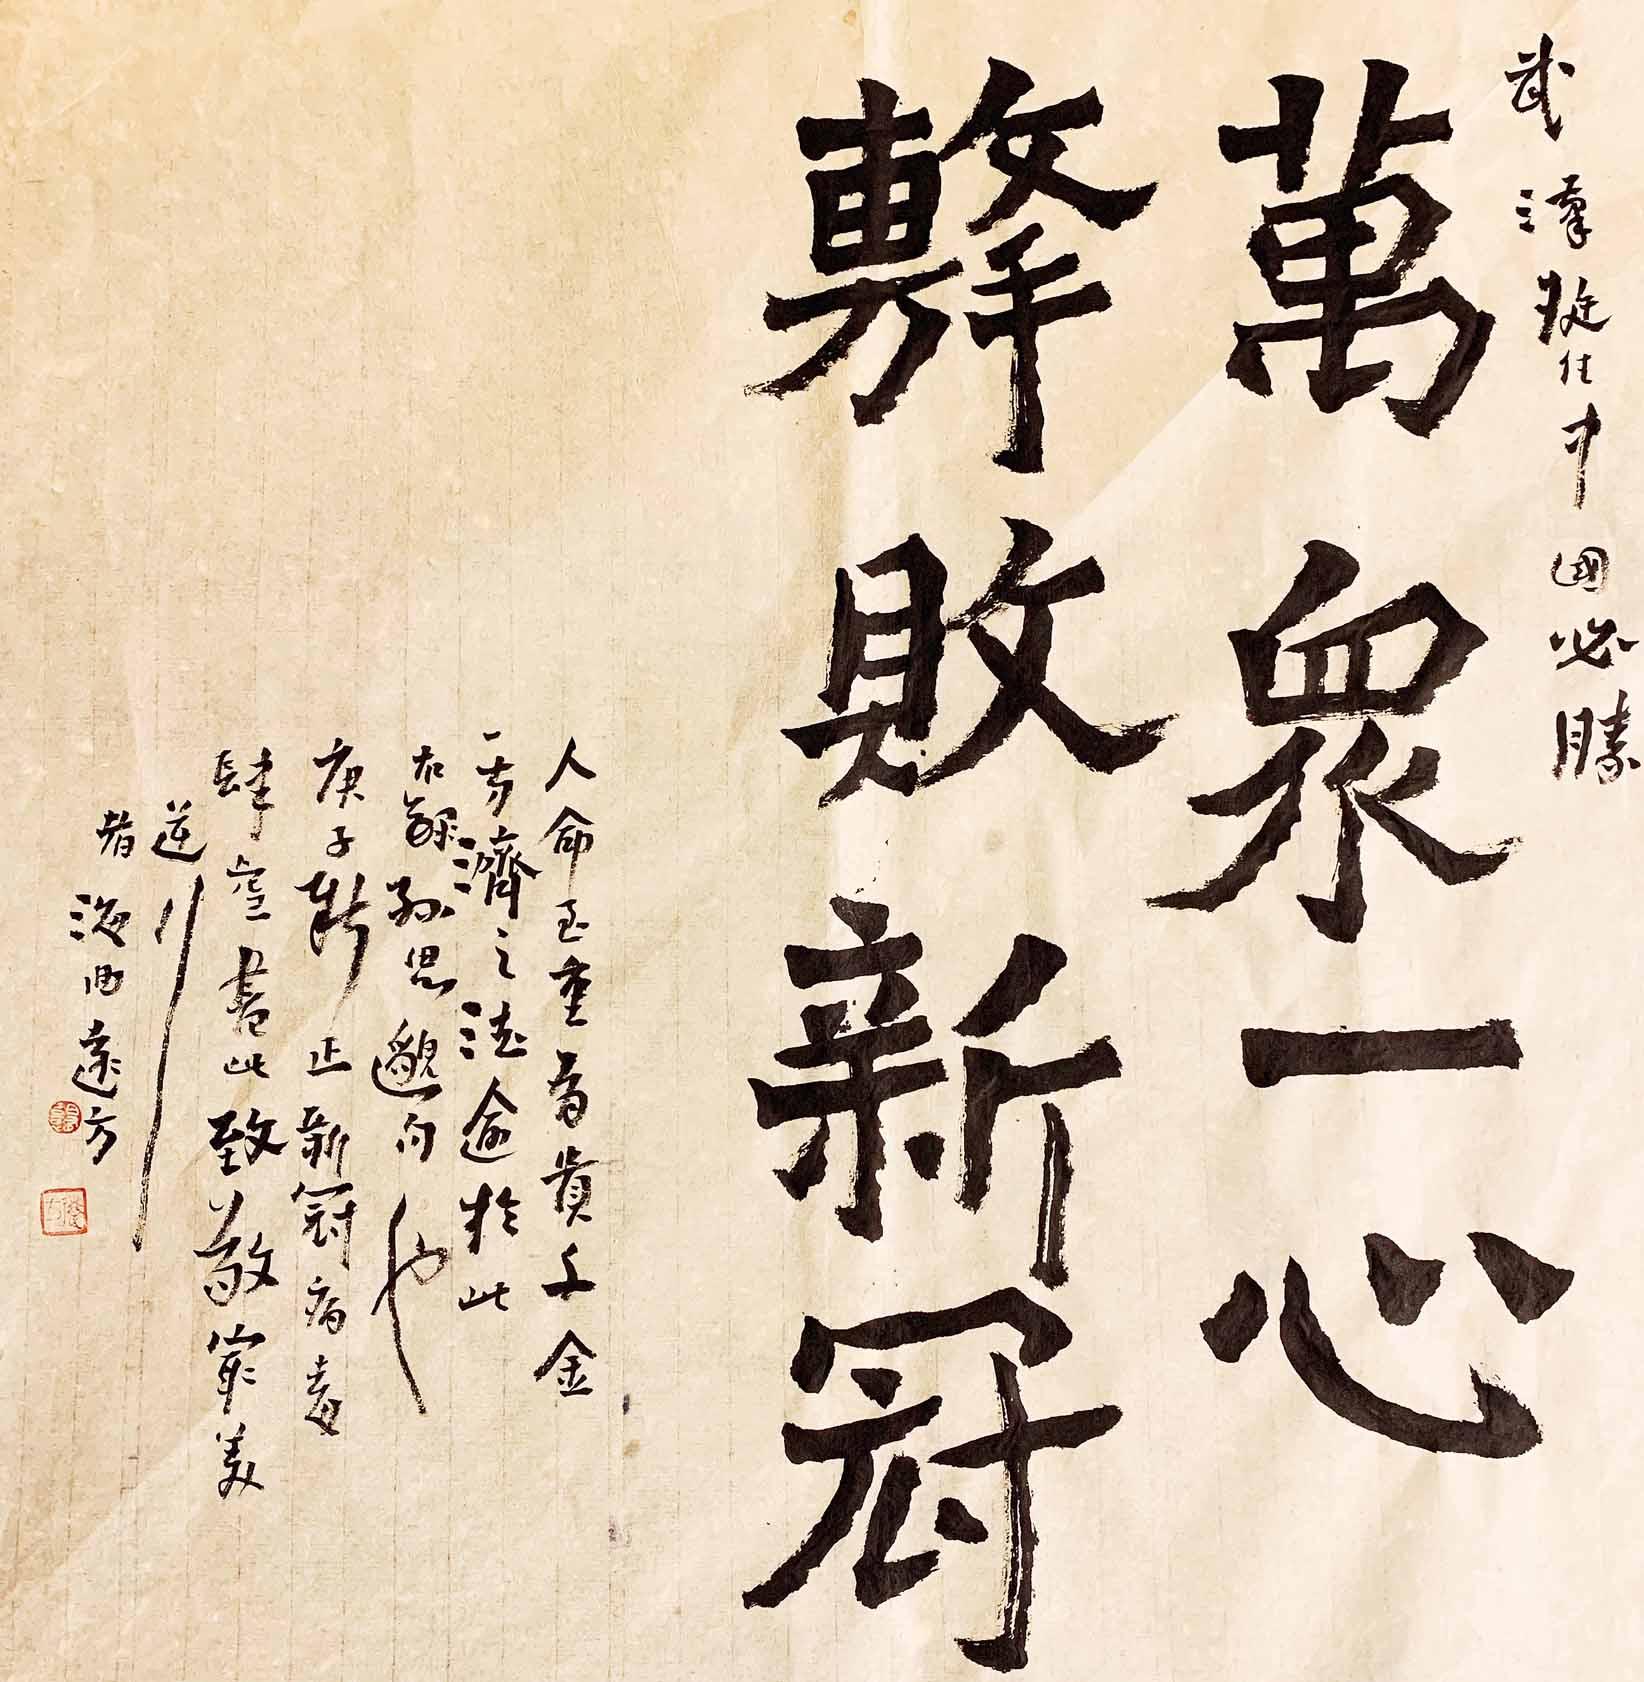 武漢挺住中國必勝
萬衆一心
擊敗新冠
人命至重有貴千金
一方濟之德逾於此
右錄孫思邈句也
庚子新正新冠病毒
肆虐書此致敬最美
逆行
者海曲遠方